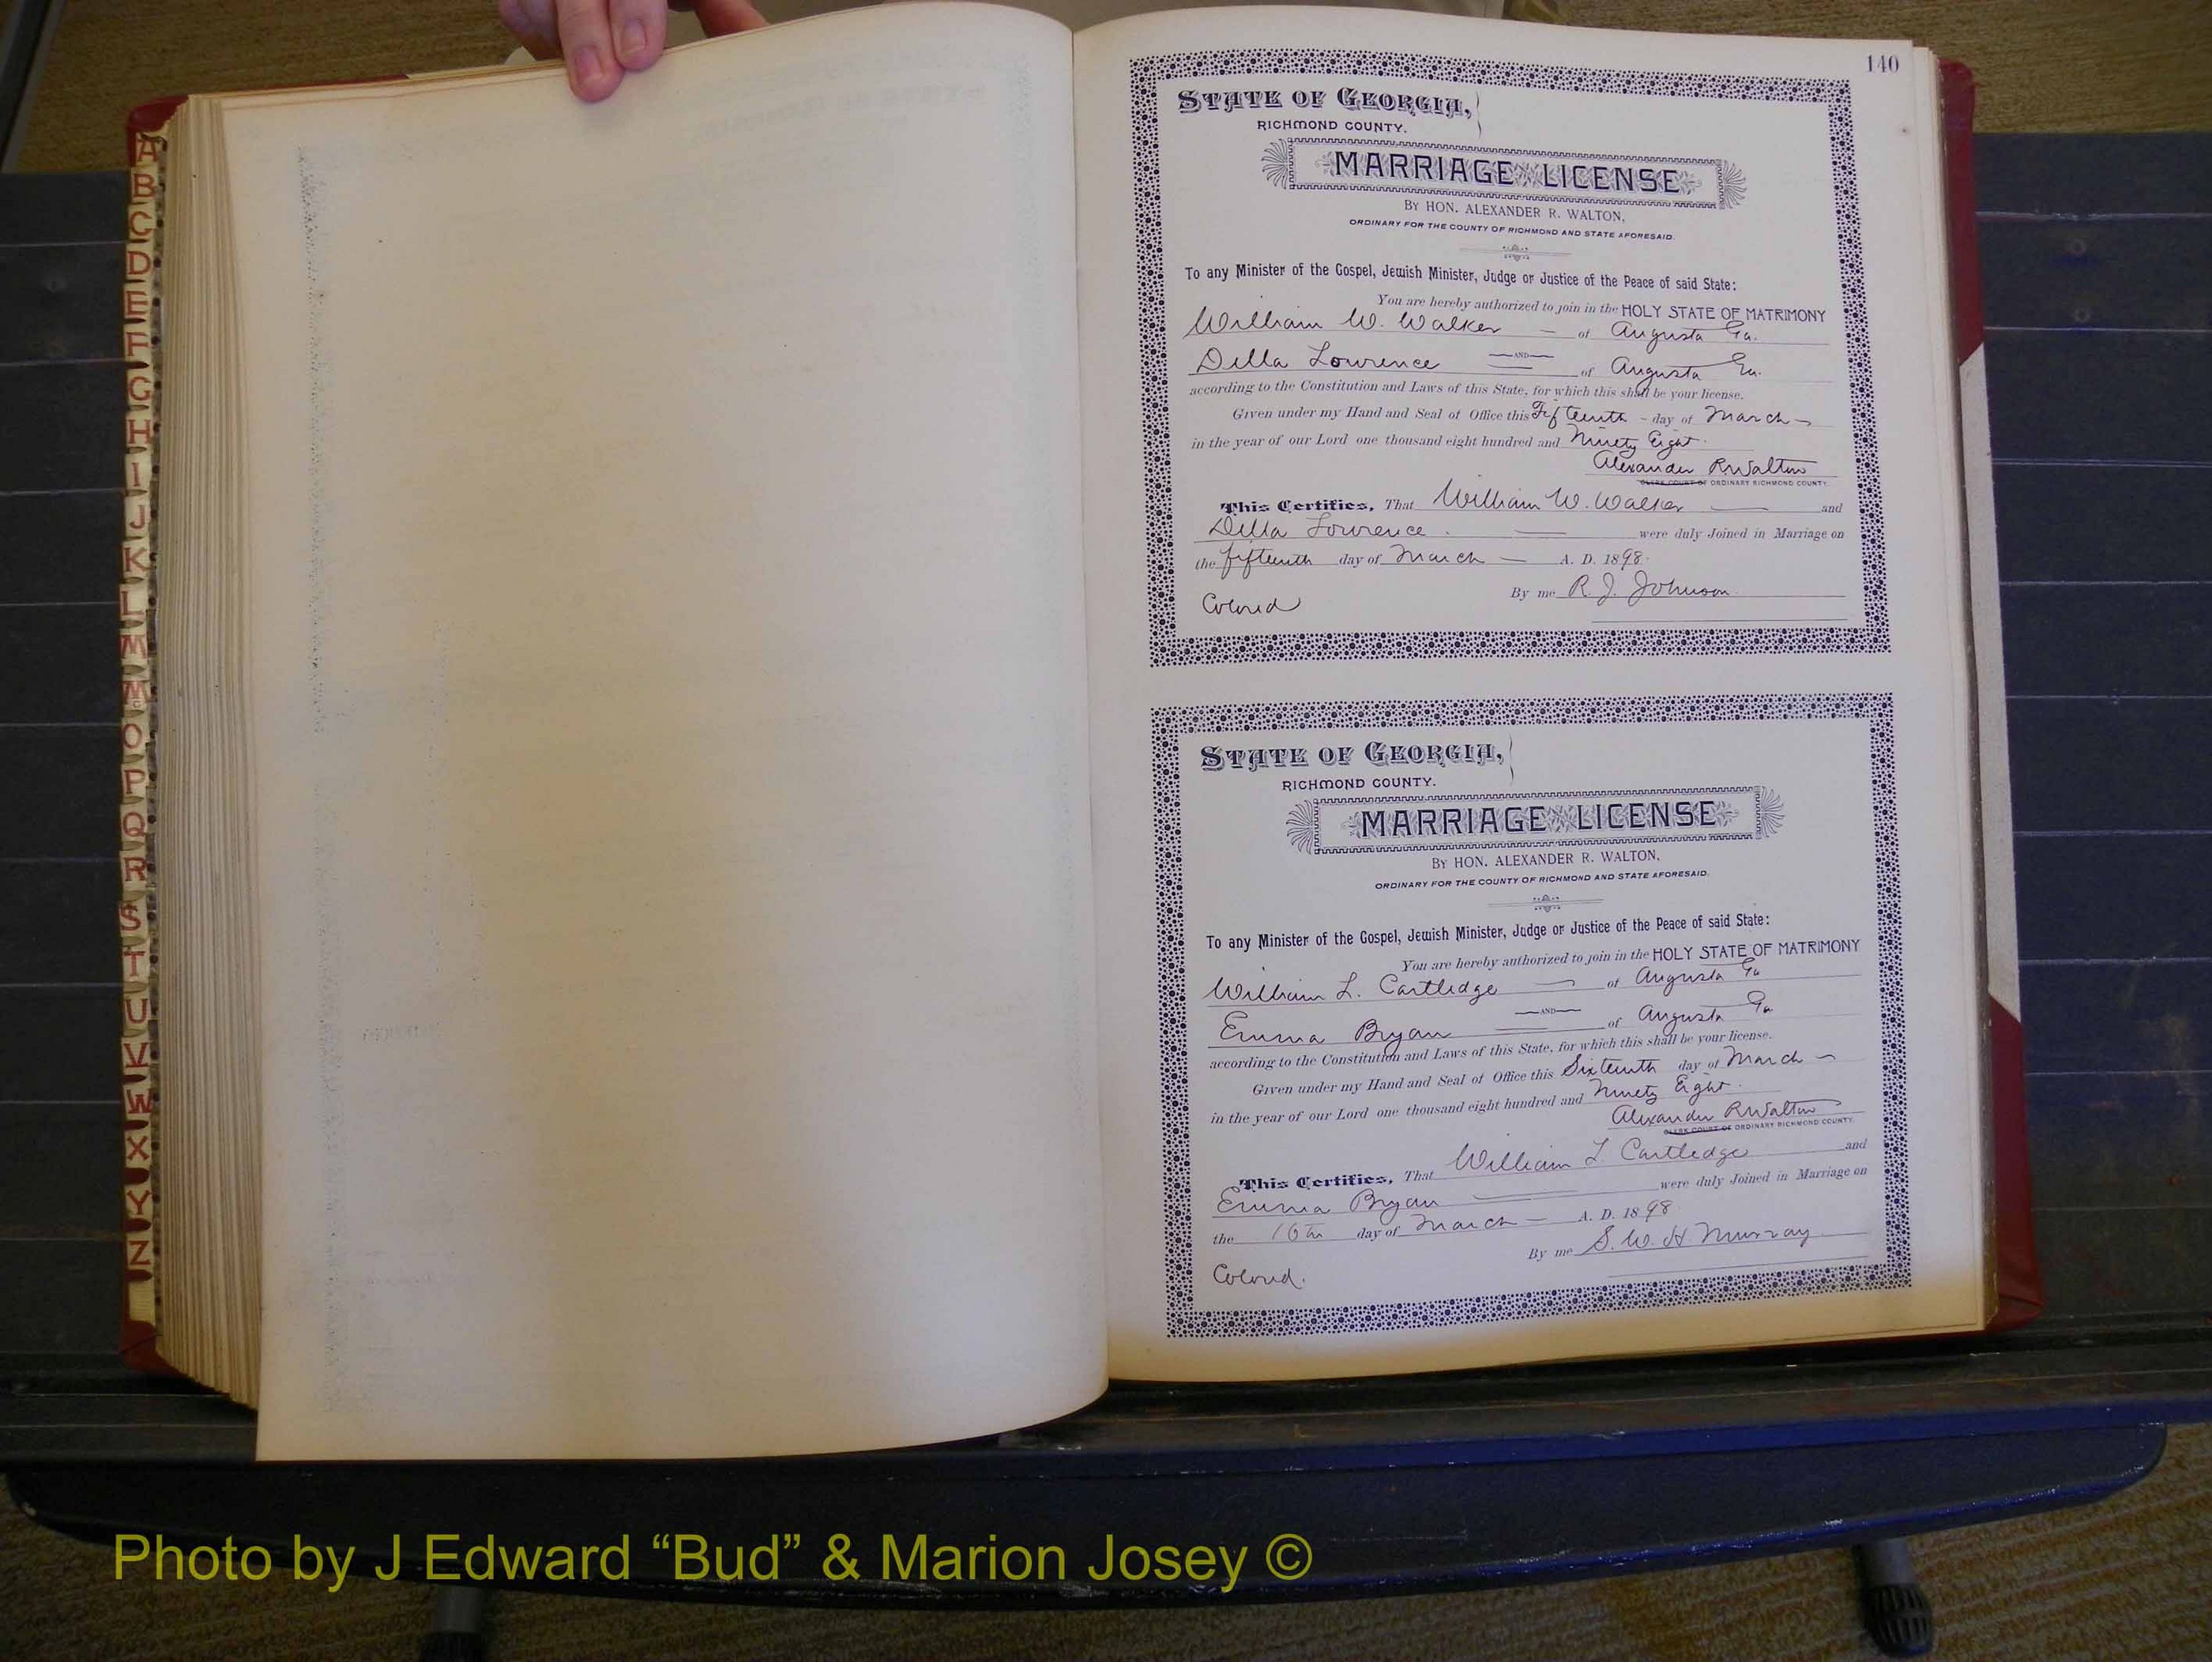 A
B
C
D
E
F
G
H
I
J
K
L
M
Mc
O
P
Q
R
S
T
U
V
W
X
Y
Z
140
STATE OF GEORGIA,
RICHMOND COUNTY.
MARRIAGE LICENSE
BY HON. ALEXANDER R. WALTON,
ORDINARY FOR THE COUNTY OF RICHMOND AND STATE AFORESAID.
To any Minister of the Gospel, Jewish Minister, Judge or Justice of the Peace of said State:
You are hereby authorized to join in the HOLY STATE OF MATRIMONY
William W. Walker — of Augusta Ga.
AND
Della Lowrence of Augusta Ga.
according to the Constitution and Laws of this State, for which this shall be your license.
Given under my Hand and Seal of Office this Fifteenth - day of March —
in the year of our Lord one thousand eight hundred and Ninety Eight.
Alexander R Walton
CLERK COURT OF ORDINARY RICHMOND COUNTY.
This Certifies, That William W. Walker — and
Della Lowrence. — were duly Joined in Marriage on
the fifteenth day of March — A. D. 1898.
By me R. J. Johnson.
Colored
STATE OF GEORGIA,
RICHMOND COUNTY.
MARRIAGE LICENSE
BY HON. ALEXANDER R. WALTON,
ORDINARY FOR THE COUNTY OF RICHMOND AND STATE AFORESAID.
To any Minister of the Gospel, Jewish Minister, Judge or Justice of the Peace of said State:
You are hereby authorized to join in the HOLY STATE OF MATRIMONY
William L. Cartledge — of Augusta Ga
AND
Emma Bryan of Augusta Ga
according to the Constitution and Laws of this State, for which this shall be your license.
Given under my Hand and Seal of Office this Sixteenth day of March —
in the year of our Lord one thousand eight hundred and Ninety Eight.
Alexander R Walton
CLERK COURT OF ORDINARY RICHMOND COUNTY.
This Certifies, That William L. Cartledge and
Emma Bryan — were duly Joined in Marriage on
the 16th day of March — A. D. 1898
By me S. W. H Murray.
Colored.
Photo by J Edward “Bud” & Marion Josey ©